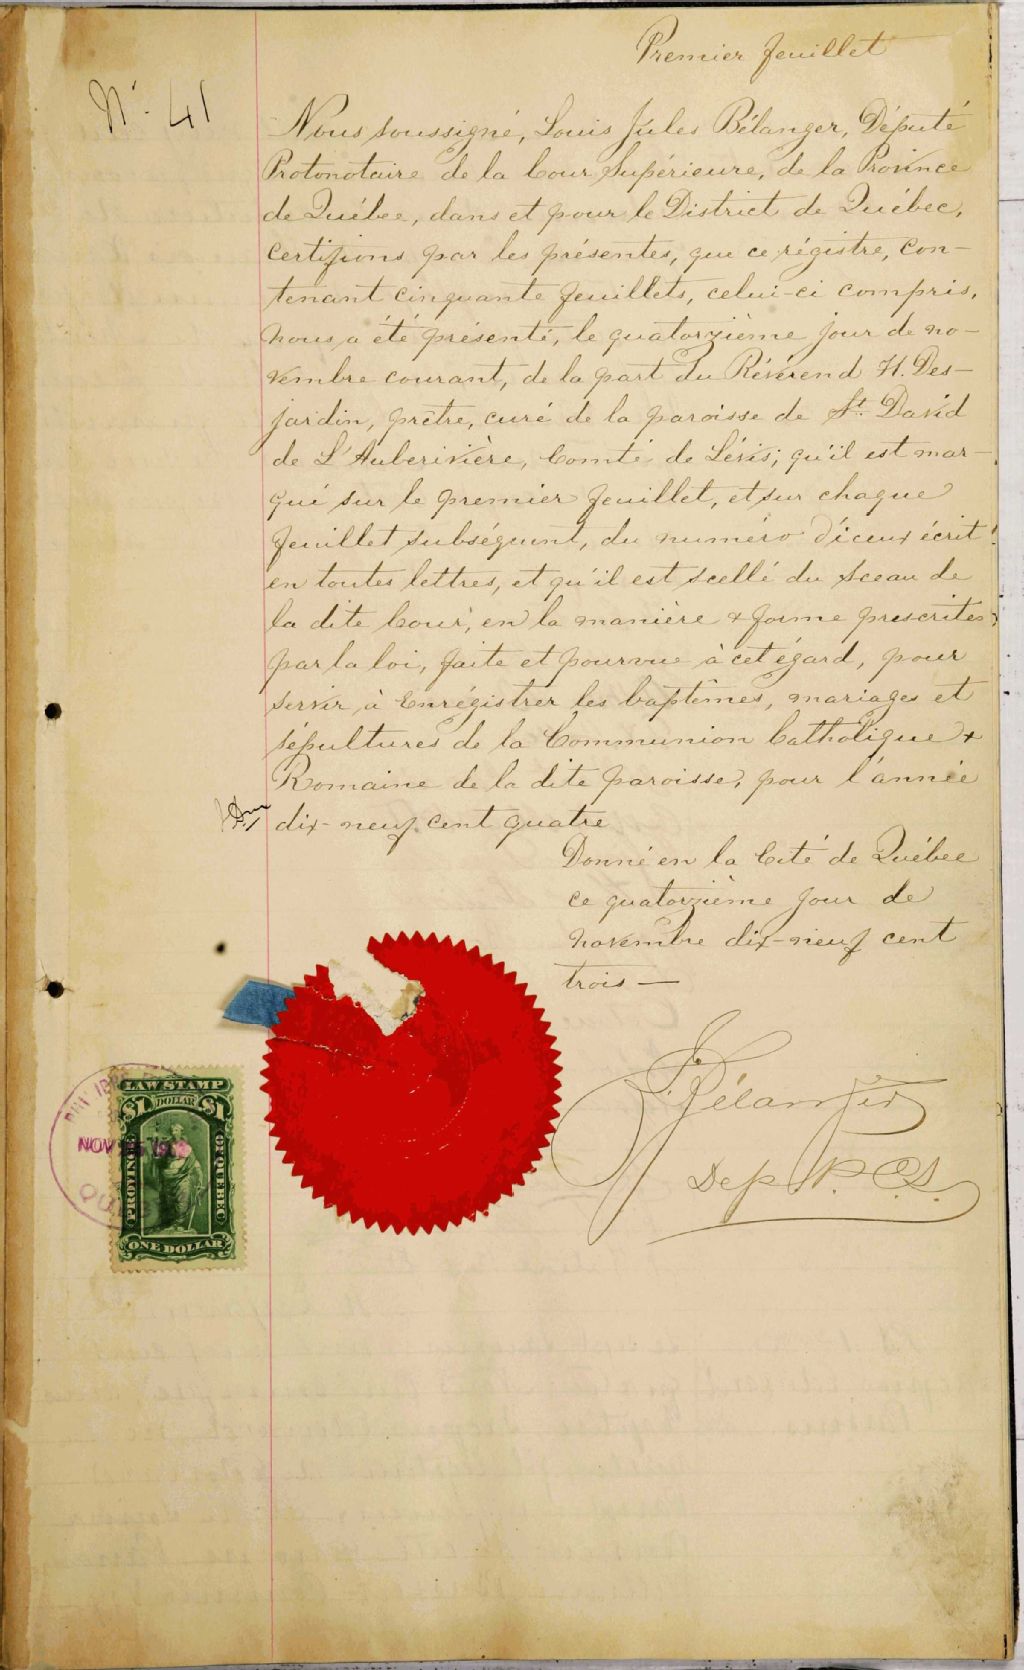 Premier feuillet
No. 41
Nous soussigné, Louis Jules Bélanger, Député
Protonotaire de la Cour Supérieure, de la Province
de Québec, dans et pour le District de Québec,
certifions par les présentes, que ce régistre, con-
tenant cinquante feuillets, celui-ci compris,
nous a été présenté, le quatorzième jour de no-
vembre courant, de la part du Révérend H. Des-
jardin, prêtre, curé de la paroisse de St. David
de L'Auberivière, Comté de Lévis; qu'il est mar-
qué sur le premier feuillet, et sur chaque
feuillet subséquent, du numéro d'iceux écrit
en toutes lettres, et qu'il est scellé du sceau de
la dite Cour, en la manière & forme prescrites
par la loi, faite et pourvue à cet égard, pour
servir à Enrégistrer les baptêmes, mariages et
sépultures de la Communion Catholique &
Romaine de la dite paroisse, pour l'année
dix-neuf cent quatre
Donné en la Cité de Québec
ce quatorzième jour de
novembre dix-neuf cent
trois —
Bélanger
Dep P.C.S.
LAW STAMP
$1 DOLLAR $1
PROVINCE OF QUEBEC
ONE DOLLAR
NOV